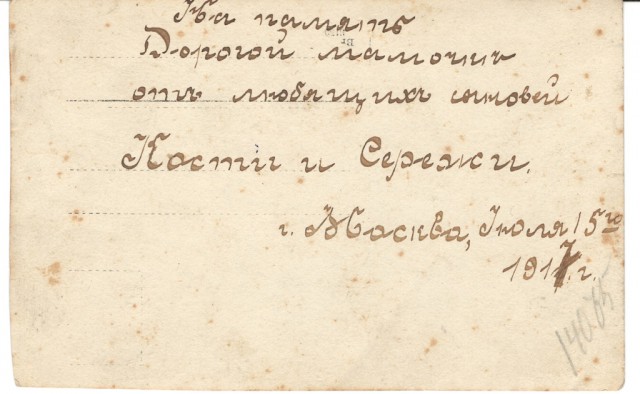 На память
Дорогой мамочкѣ
отъ любящихъ сыновей
Кости и Сережи.
г. Москва, Июля 15го
1917 г.
14085